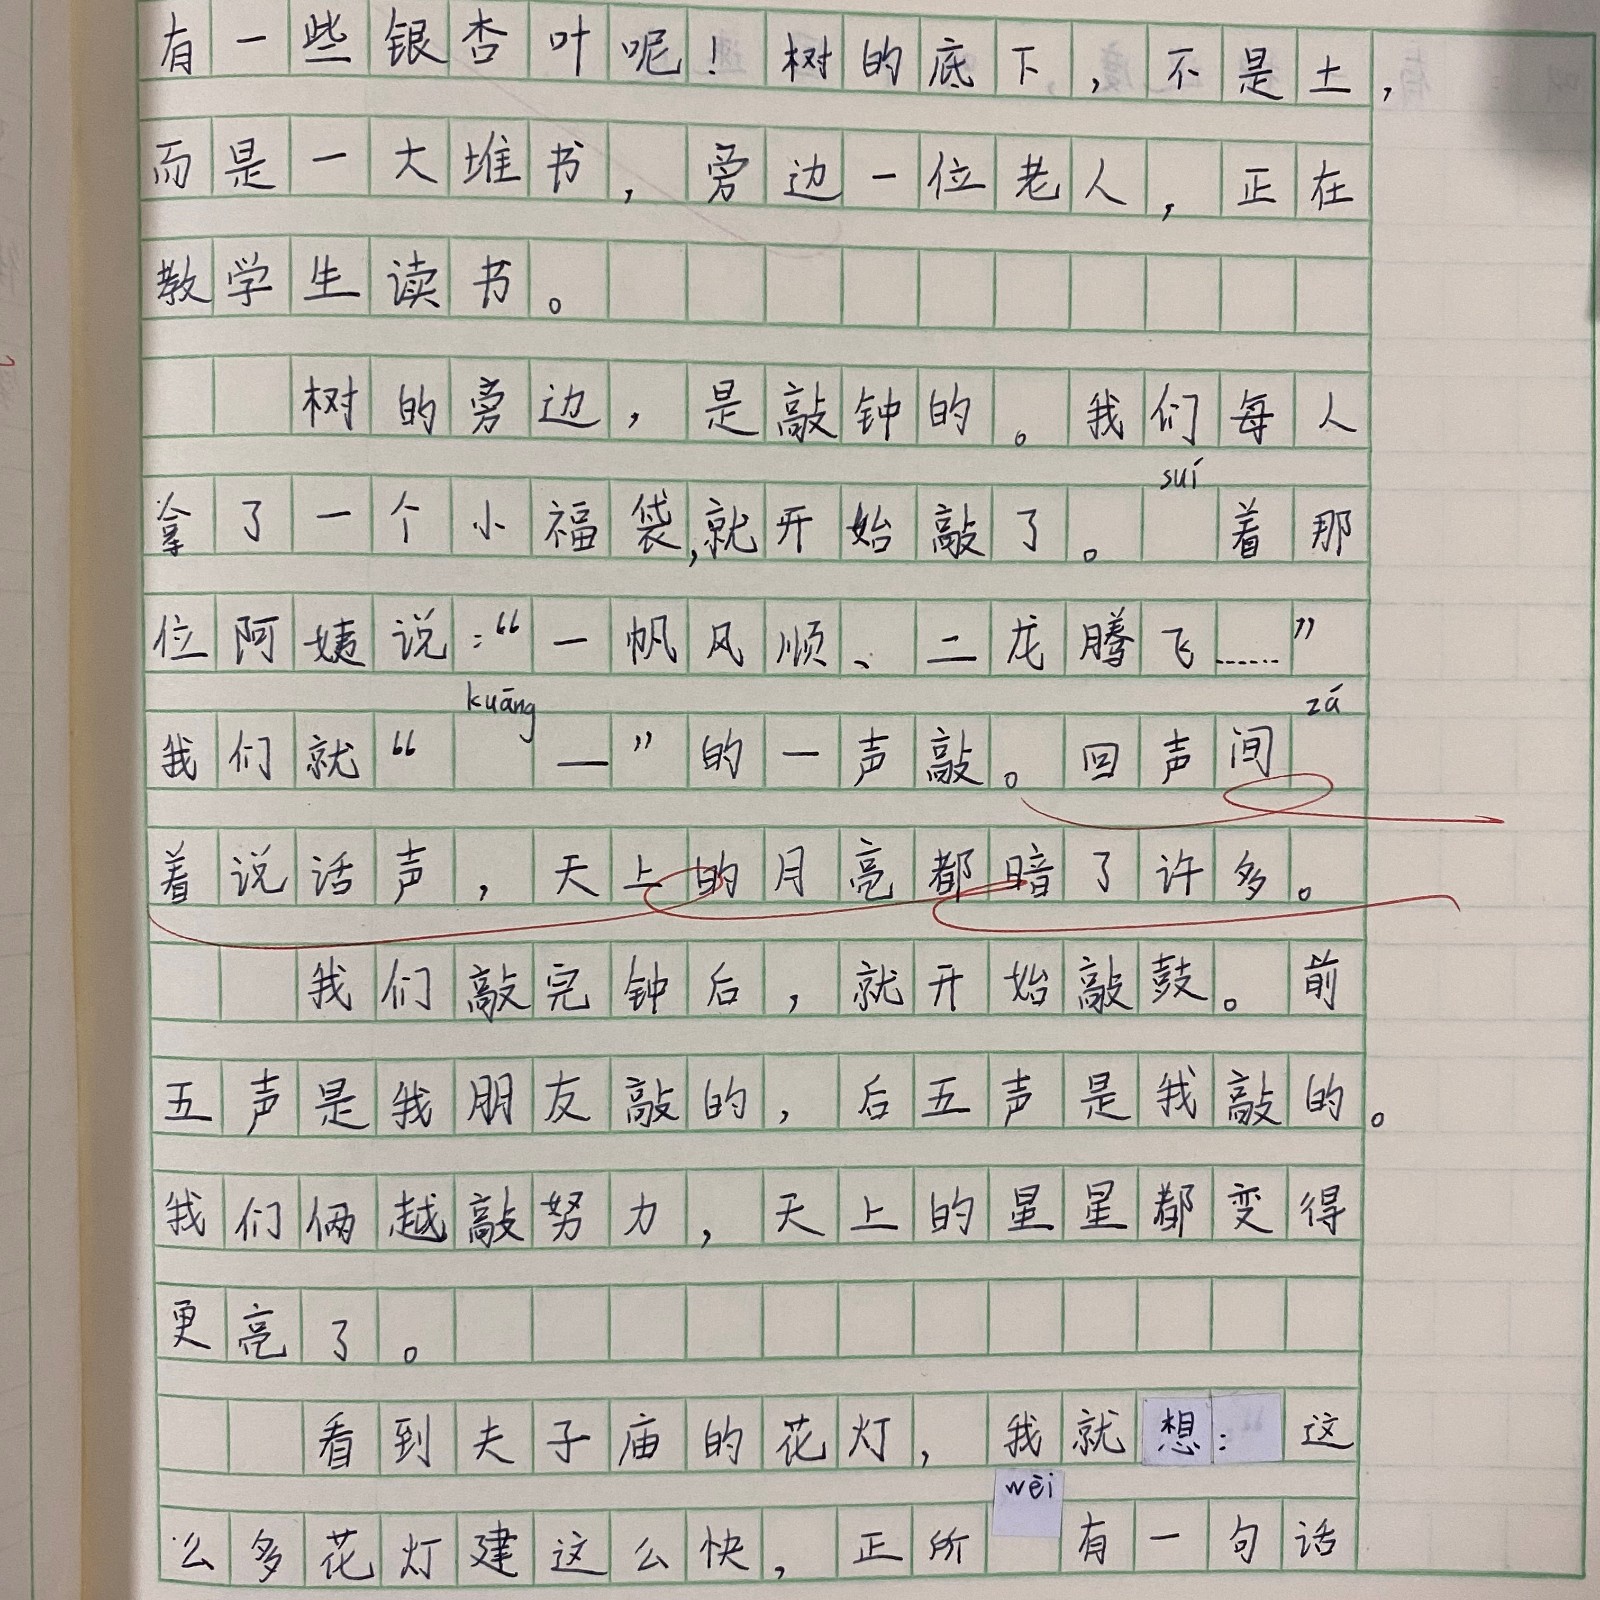 有一些银杏叶呢！树的底下，不是土，
而是一大堆书，旁边一位老人，正在
教学生读书。
树的旁边，是敲钟的。我们每人
拿了一个小福袋，就开始敲了。suí着那
位阿姨说：“一帆风顺、二龙腾飞……”
我们就“kuāng—”的一声敲。回声间zá
着说话声，天上的月亮都暗了许多。
我们敲完钟后，就开始敲鼓。前
五声是我朋友敲的，后五声是我敲的。
我们俩越敲努力，天上的星星都变得
更亮了。
看到夫子庙的花灯，我就想：这
么多花灯建这么快，正所wèi有一句话